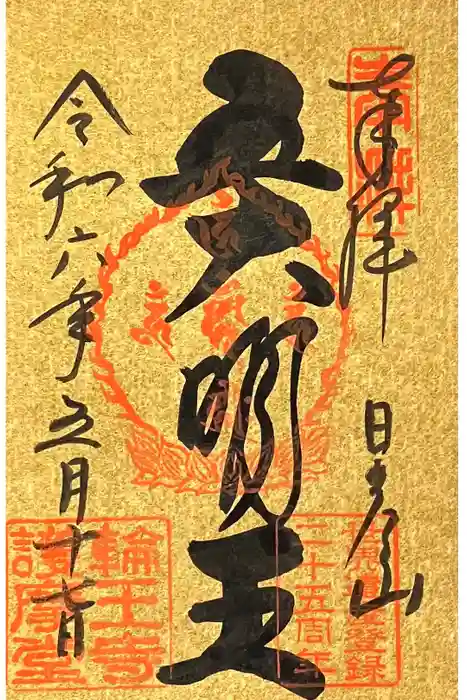 奉拝
日光山
五大明王
令和六年五月十七日
世界遺産登録
二十五周年
輪王寺
護摩堂